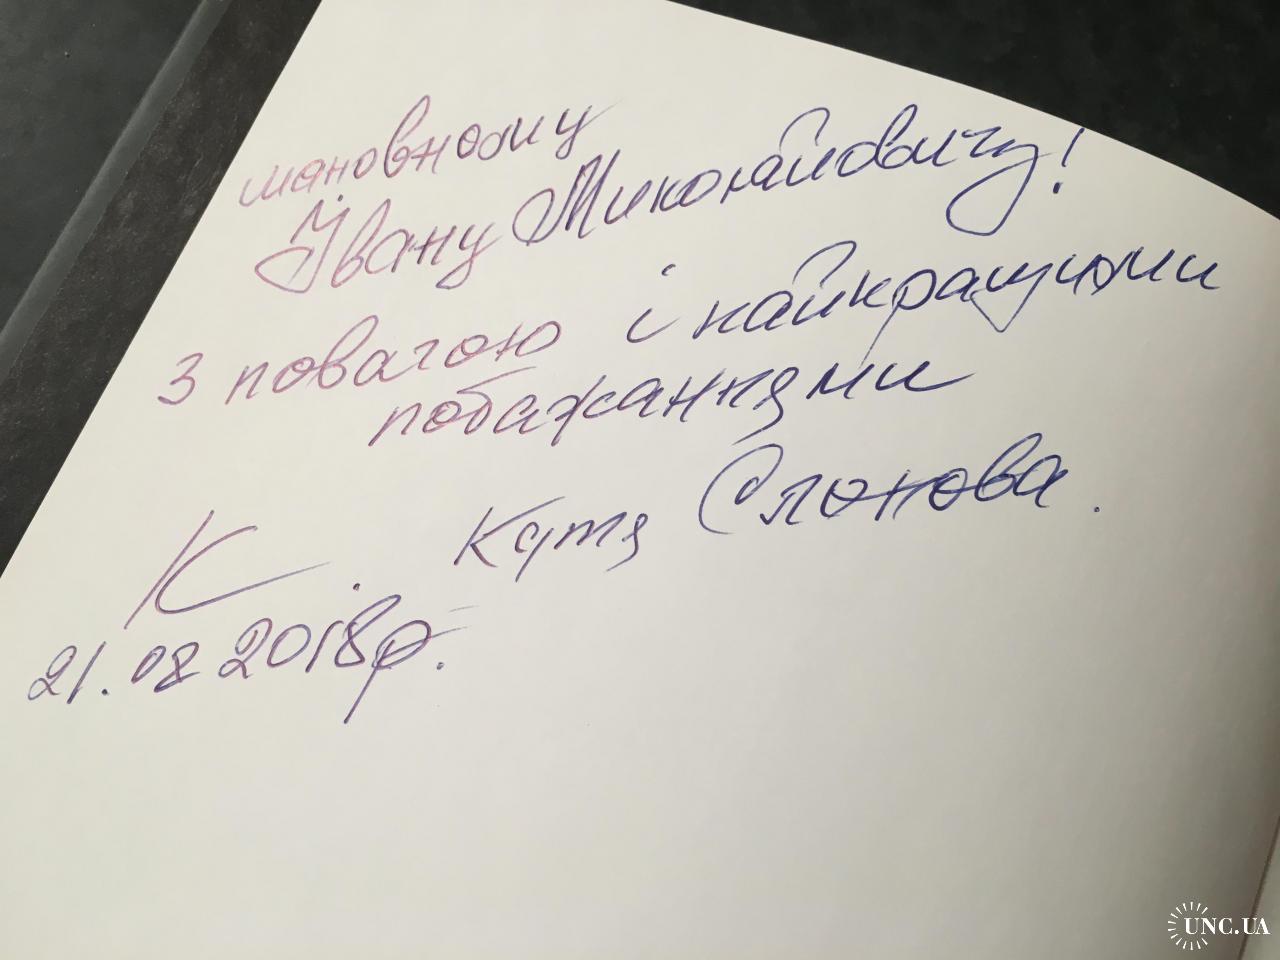 шановному
Івану Миколайовичу!
З повагою і найкращими
побажаннями
Катя Слонова.
К
21.08.2018р.
UNC.UA